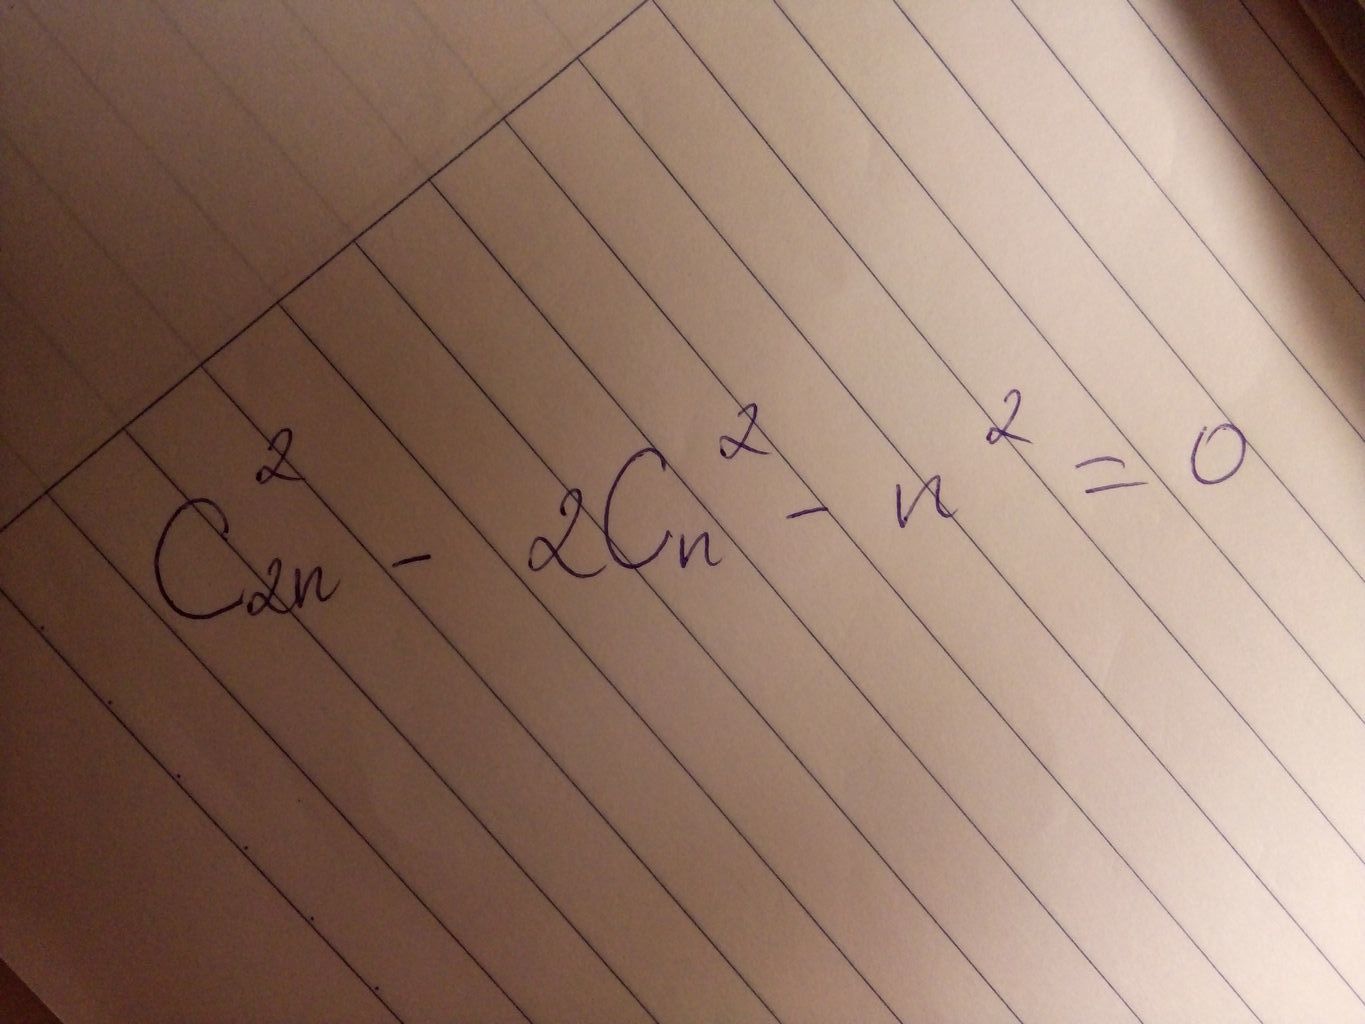 C²₂ₙ - 2Cₙ² - n² = 0